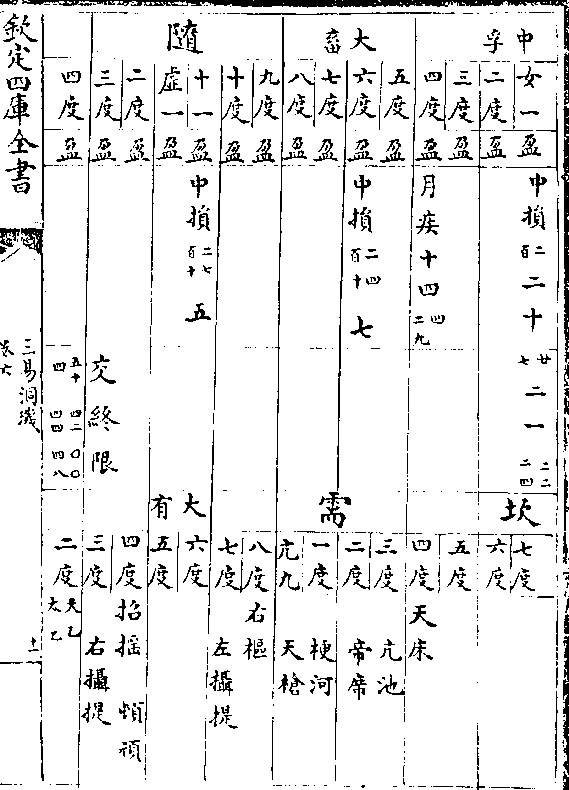 中孚 大畜 隨
女一 二度 三度 四度 五度 六度 七度 八度 九度 十度 十一 虛一 二度 三度 四度
盈 盈 盈 盈 盈 盈 盈 盈 盈 盈 盈 盈 盈 盈 盈
中損 二百 二十
月疾十四 四二九
中損 二四百十 七
中損 二七百十 五
廿七 二一 二二二四
交終限
五十四 四二四四 〇〇四八
坎 需 大有
七度 六度 五度 四度 三度 二度 一度 亢九 八度 七度 六度 五度 四度 三度 二度
天床
亢池
帝席
梗河
天槍
右樞
左攝提
招搖 頓頑
右攝提
天乙
太乙
欽定四庫全書
三易洞璣
卷六
十一